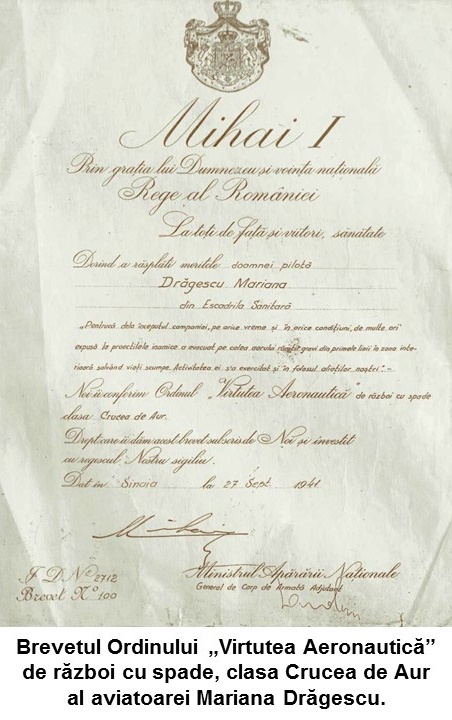 Mihai I
Prin grația lui Dumnezeu și voința națională
Rege al României
La toți de față și viitori, sănătate
Dorind a răsplăti meritele doamnei pilotă
Drăgescu Mariana
din Escadrila Sanitară
„Pentrucă dela începutul campaniei, pe orice vreme și în orice condițiuni, de multe ori
expusă la proectilele inamice a evacuat pe calea aerului răniții gravi din primele linii în zona inte-
rioară salvând vieți scumpe. Activitatea ei s'a exercitat și în folosul aliaților noștri".-
Noi îi conferim Ordinul "Virtutea Aeronautică" de război cu spade
clasa Crucea de Aur.
Drept care îi dăm acest brevet subscris de Noi și investit
cu regescul Nostru sigiliu.
Dat în Sinaia la 27 Sept. 1941
Mihai
Ministrul Apărării Naționale
General de Corp de Armată Adjutant
I D Nº 2712
Brevet Nº 100
Brevetul Ordinului „Virtutea Aeronautică”
de război cu spade, clasa Crucea de Aur
al aviatoarei Mariana Drăgescu.